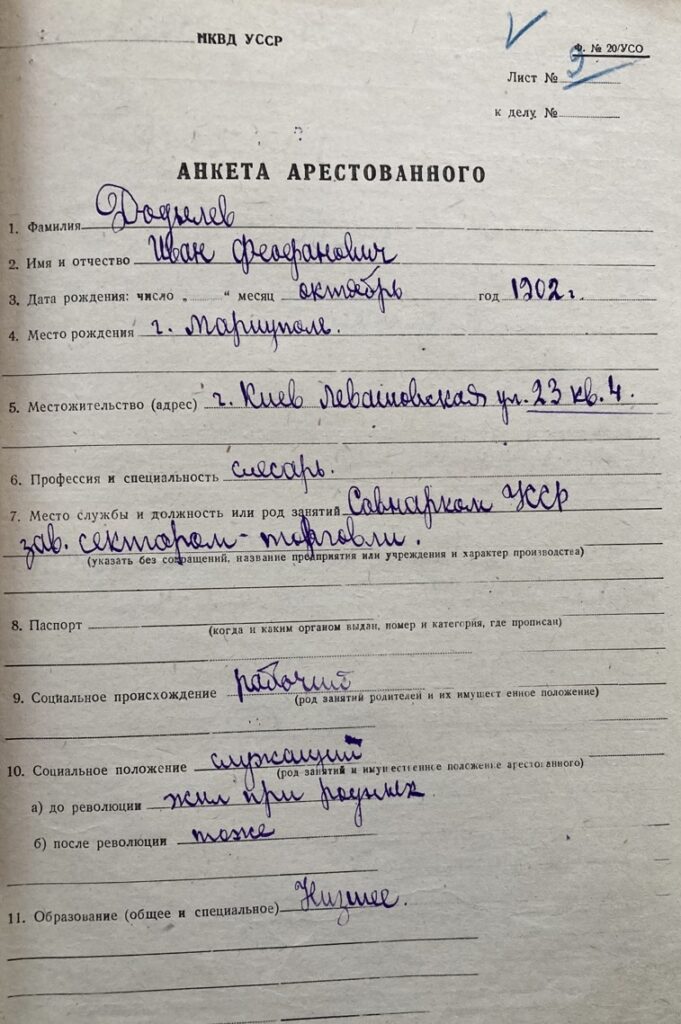 НКВД УССР
Ф. № 20/УСО
Лист № 9
к делу №
АНКЕТА АРЕСТОВАННОГО
1. Фамилия Додылев
2. Имя и отчество Иван Феофанович
3. Дата рождения: число „ “ месяц октябрь год 1902 г.
4. Место рождения г. Мариуполе.
5. Местожительство (адрес) г. Киев Левашовская ул. 23 кв. 4.
6. Профессия и специальность слесарь.
7. Место службы и должность или род занятий Совнарком УССР
зав. сектором - торговли.
(указать без сокращений, название предприятия или учреждения и характер производства)
8. Паспорт
(когда и каким органом выдан, номер и категория, где прописан)
9. Социальное происхождение рабочий
(род занятий родителей и их имущест енное положение)
10. Социальное положение служащий
(род занятий и имущественное положение арестованного)
а) до революции жил при родных
б) после революции тоже
11. Образование (общее и специальное) Низшее.